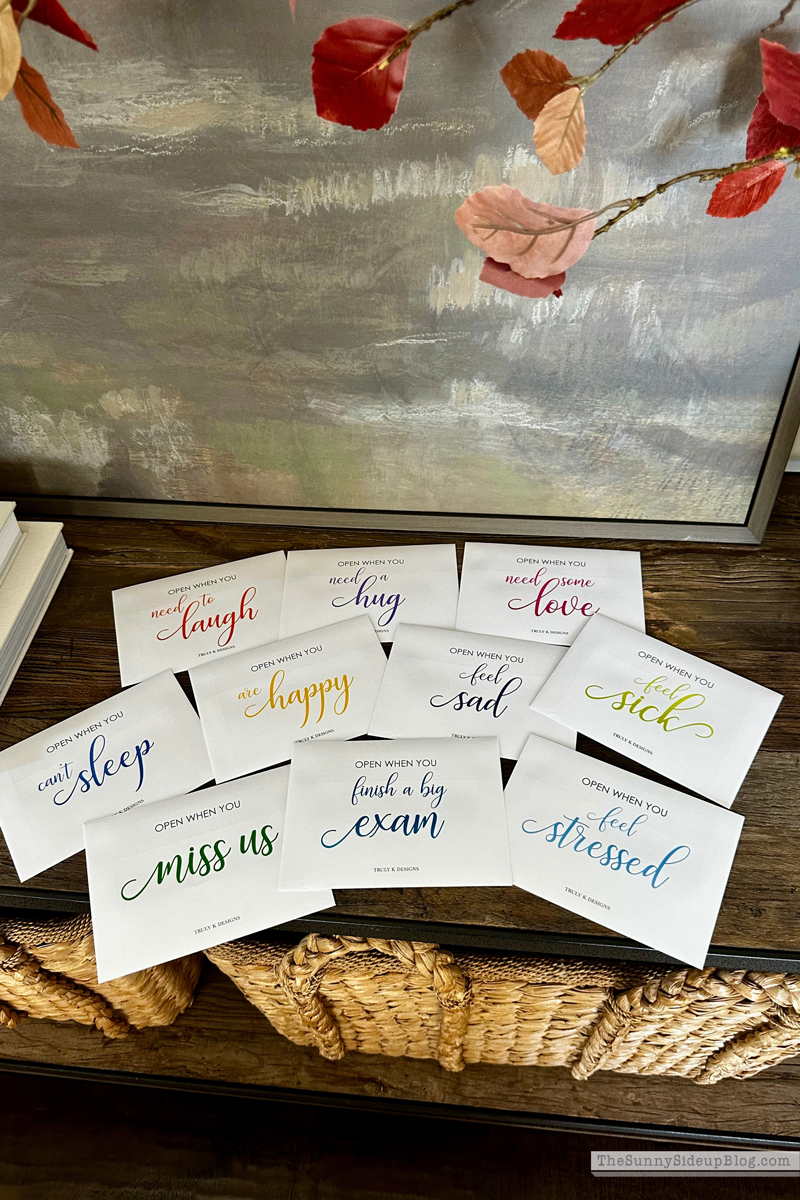 OPEN WHEN YOU
need to
laugh
TRULY K DESIGNS
OPEN WHEN YOU
need a
hug
OPEN WHEN YOU
need some
love
TRULY K DESIGNS
OPEN WHEN YOU
can't sleep
OPEN WHEN YOU
are happy
OPEN WHEN YOU
feel
sad
OPEN WHEN YOU
feel
sick
TRULY K DESIGNS
OPEN WHEN YOU
miss us
TRULY K DESIGNS
OPEN WHEN YOU
finish a big
exam
TRULY K DESIGNS
OPEN WHEN YOU
feel
stressed
TRULY K DESIGNS
TheSunnySideupBlog.com